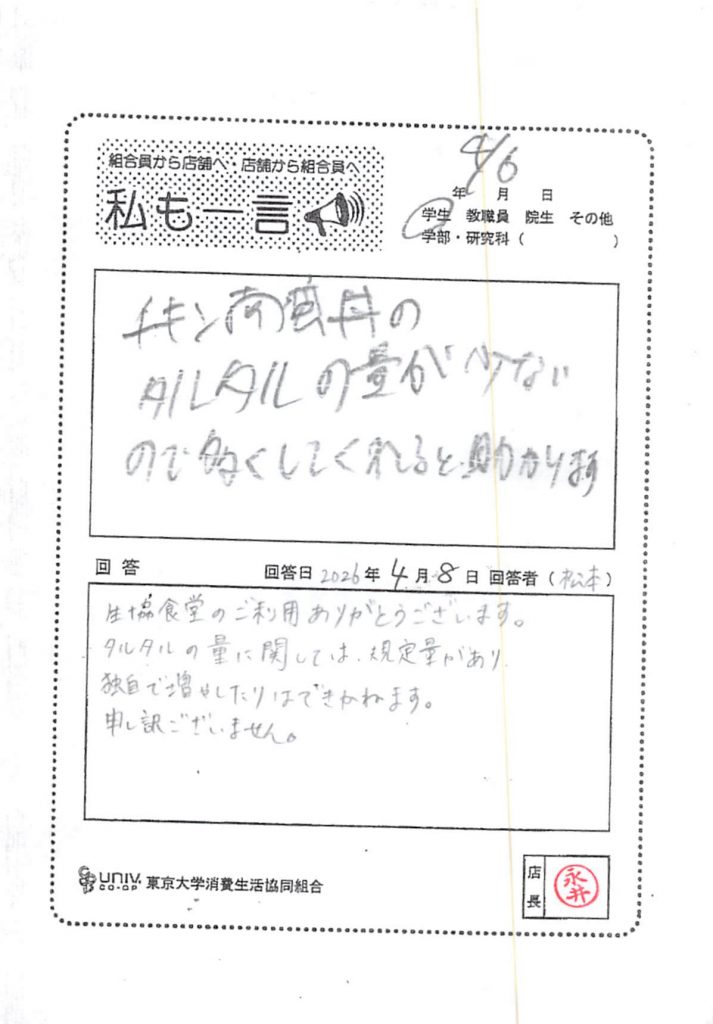 組合員から店舗へ・店舗から組合員へ
私も一言
4/6
年 月 日
学生 教職員 院生 その他
学部・研究科（ ）
チキン南蛮丼の
タルタルの量が少ない
ので多くしてくれると助かります
回答 回答日 2026年 4月 8日 回答者（松本）
生協食堂のご利用ありがとうございます。
タルタルの量に関しては、規定量があり
独自で増やしたりはできかねます。
申し訳ございません。
UNIV. CO-OP 東京大学消費生活協同組合
店長 永井